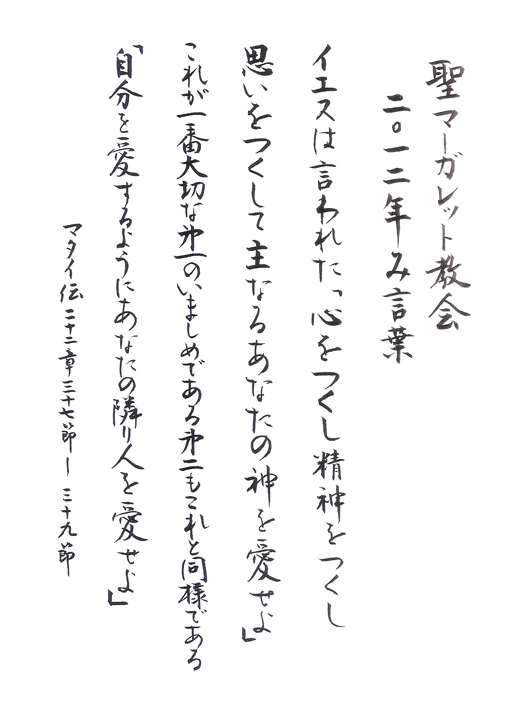 聖マーガレット教会
二〇一二年み言葉
イエスは言われた「心をつくし精神をつくし
思いをつくして主なるあなたの神を愛せよ」
これが一番大切な第一のいましめである第二もこれと同様である
「自分を愛するようにあなたの隣り人を愛せよ」
マタイ伝二十二章三十七節ー三十九節